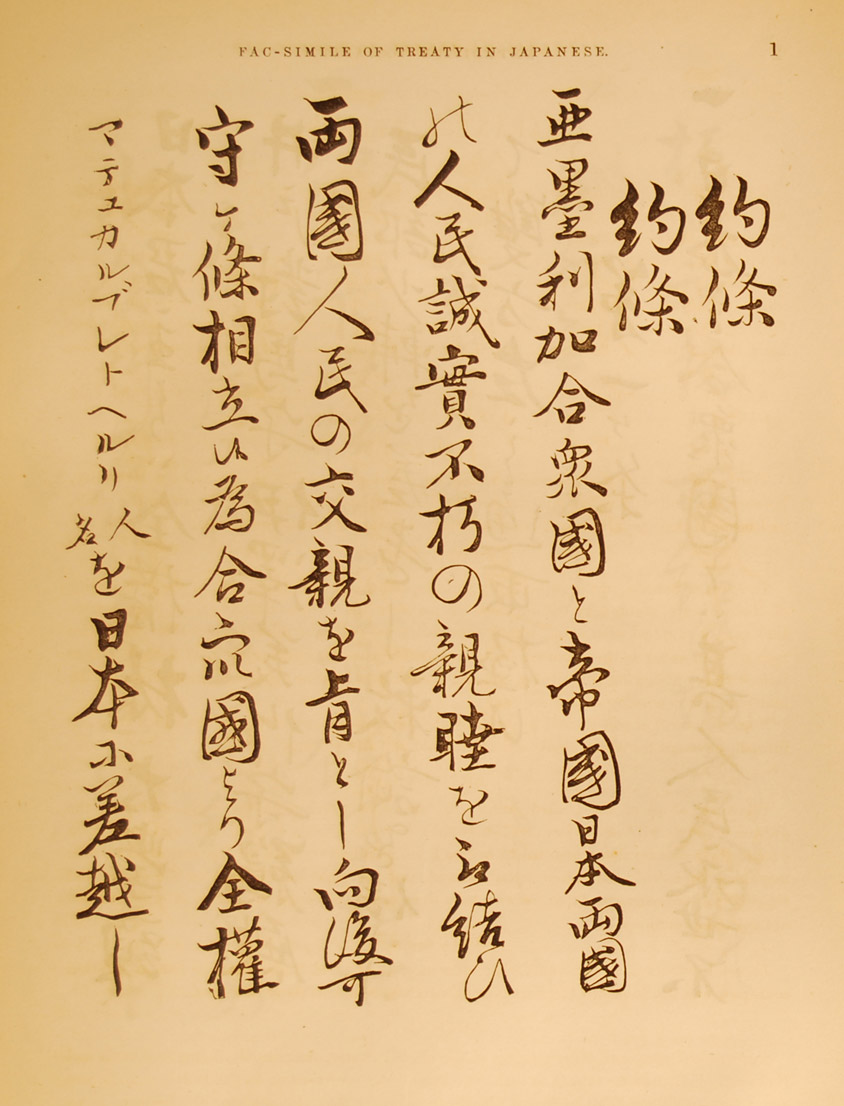 FAC-SIMILE OF TREATY IN JAPANESE.
1
約條
約條
亜墨利加合衆國と帝國日本両國
の人民誠實不朽の親睦を取結ひ
両國人民の交親を旨とし向後可
守ケ條相立候為合衆國より全權
マテユカルブレトヘルリ人名を日本に差越し